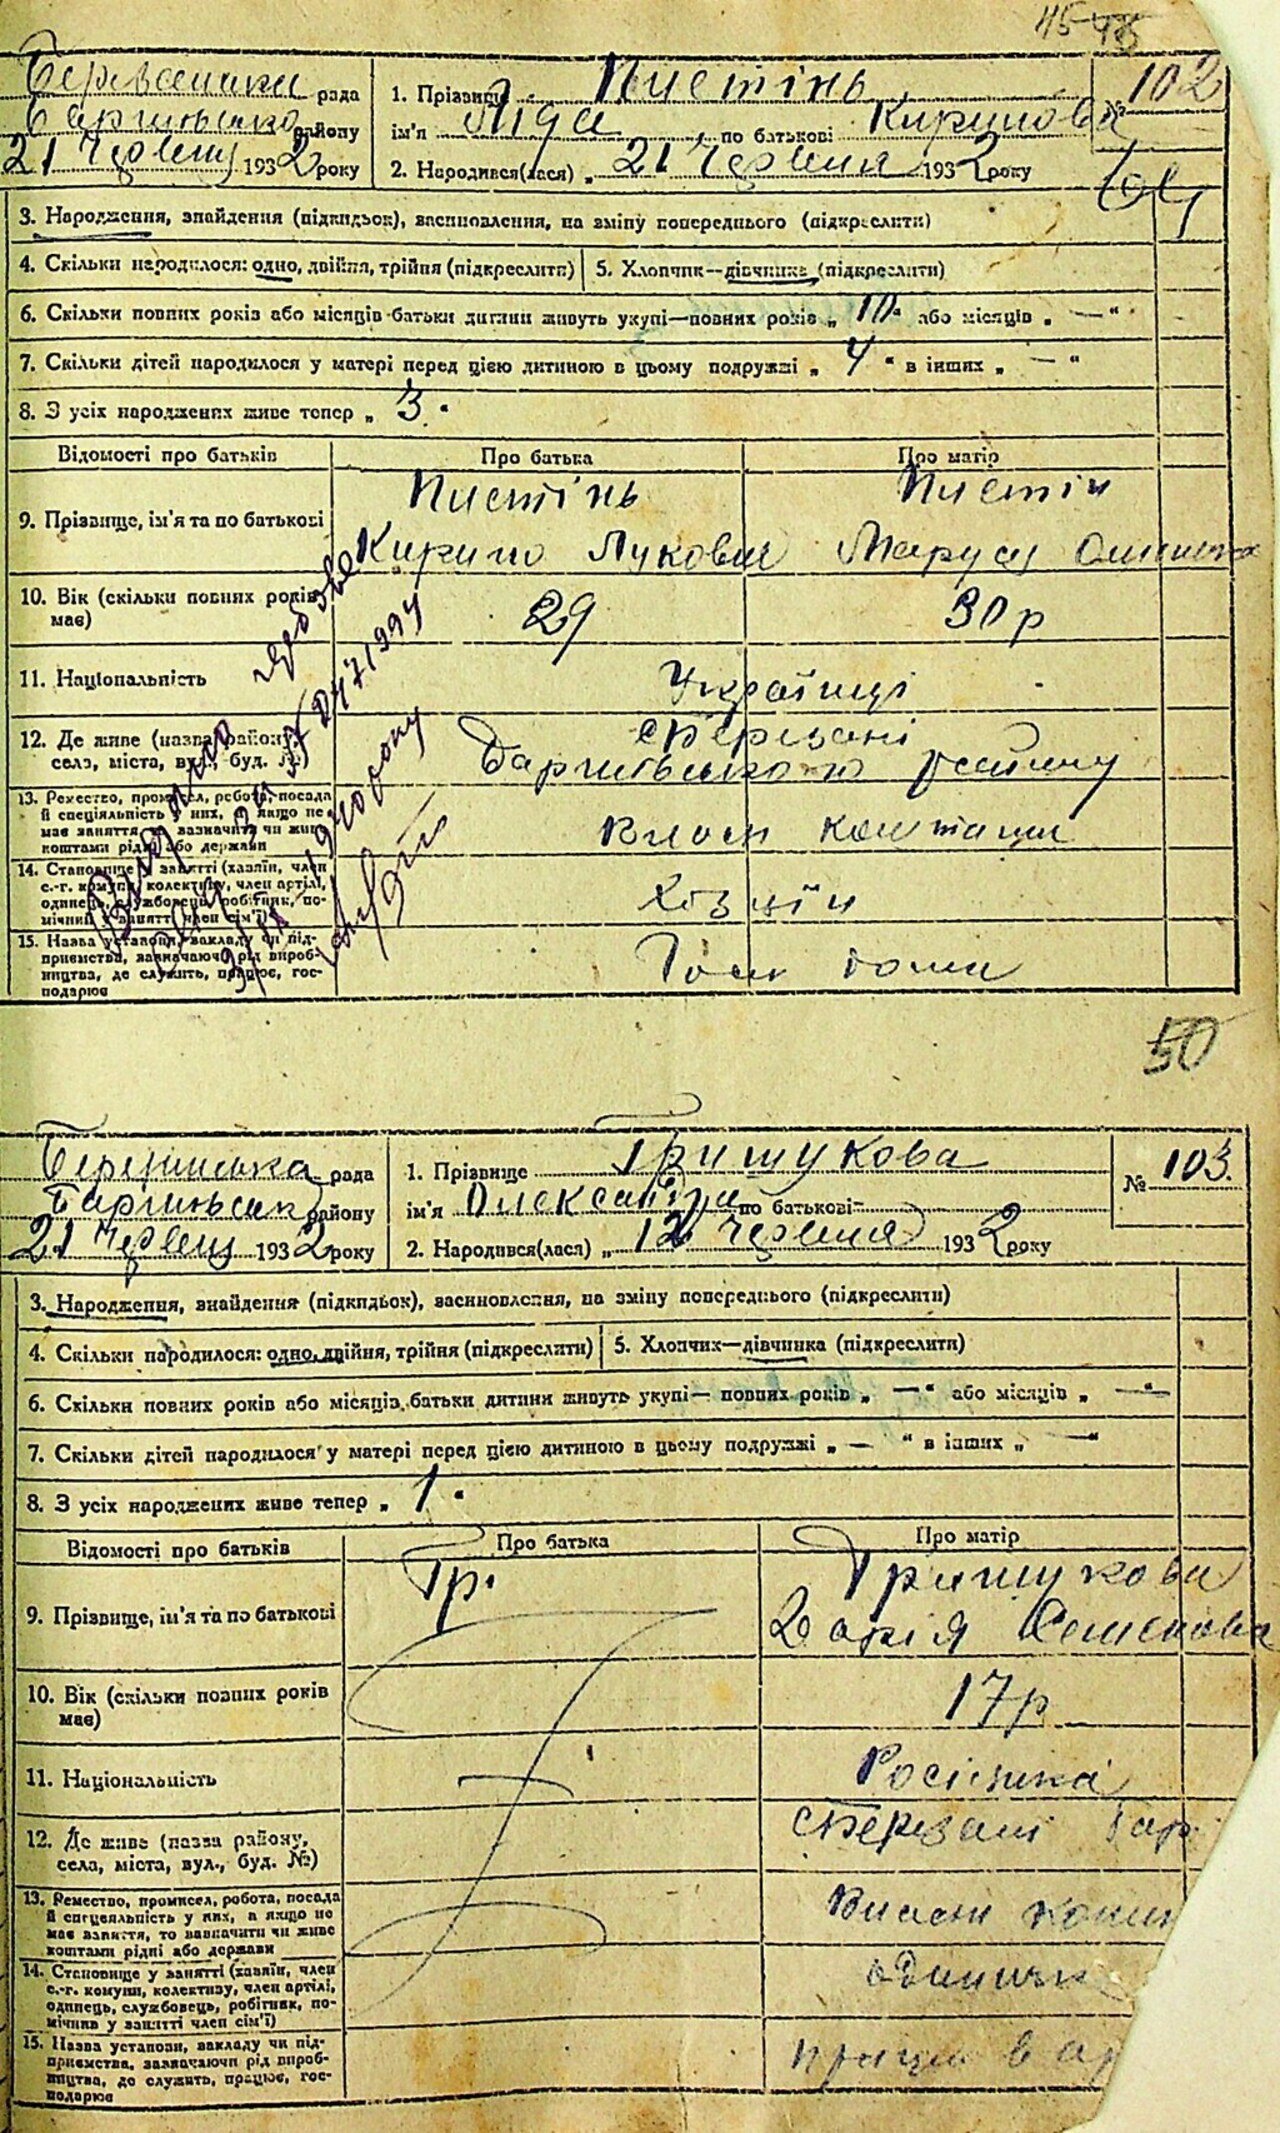 45
рада
району
21 Червня 1932 року
1. Прізвище Пистінь
ім'я Ліда по батькові Кирилова
2. Народився(лася) „ 21 Червня 1932 року
№ 102
3. Народження, знайдення (підкидьок), васиновлення, на зміну попереднього (підкреслити)
4. Скільки народилося: одно, двійня, трійня (підкреслити)
5. Хлопчик—дівчинка (підкреслити)
6. Скільки повних років або місяців батьки дитини живуть укупі—повних років „ 10 “ або місяців „ — “
7. Скільки дітей народилося у матері перед цією дитиною в цьому подружжі „ 4 “ в інших „ — “
8. З усіх народжених живе тепер „ 3 “
Відомості про батьків
Про батька
Про матір
9. Прізвище, ім'я та по батькові
Пистінь
Кирило Лукович
Пистін
Маруся
10. Вік (скільки повних років
має)
29
30 р
11. Національність
Українці
12. Де живе (назва району,
села, міста, вул., буд. №)
с Березані
району
13. Ремество, промисел, робота, посада
й спеціяльність у них, а якщо не
має заняття, то зазначити чи живе
коштами рідні або держави
Власн
14. Становище у занятті (хазяїн, член
с.-г. комуни, колективу, член артілі,
одинець, службовець, робітник, по-
мічний у занятті член сім'ї)
Хозяїн
15. Назва установи, закладу чи під-
приємства, зазначаючи рід вироб-
ництва, де служить, працює, гос-
подарює
дома
50
рада
району
21 Червня 1932 року
1. Прізвище Гришукова
ім'я Олександра по батькові —
2. Народився(лася) „ 12 Червня 1932 року
№ 103.
3. Народження, знайдення (підкидьок), васиновлення, на зміну попереднього (підкреслити)
4. Скільки народилося: одно, двійня, трійня (підкреслити)
5. Хлопчик—дівчинка (підкреслити)
6. Скільки повних років або місяців батьки дитини живуть укупі— повних років „ — “ або місяців „ — “
7. Скільки дітей народилося у матері перед цією дитиною в цьому подружжі „ — “ в інших „ — “
8. З усіх народжених живе тепер „ 1 “
Відомості про батьків
Про батька
Про матір
9. Прізвище, ім'я та по батькові
Гр.
Гришукова
Дарія Семенова
10. Вік (скільки повних років
має)
17 р
11. Національність
Росіянка
12. Де живе (назва району,
села, міста, вул., буд. №)
с Березані Бар
13. Ремество, промисел, робота, посада
й спеціяльність у них, а якщо не
має заняття, то зазначити чи живе
коштами рідні або держави
Власн
14. Становище у занятті (хазяїн, член
с.-г. комуни, колективу, член артілі,
одинець, службовець, робітник, по-
мічний у занятті член сім'ї)
15. Назва установи, закладу чи під-
приємства, зазначаючи рід вироб-
ництва, де служить, працює, гос-
подарює
в ар